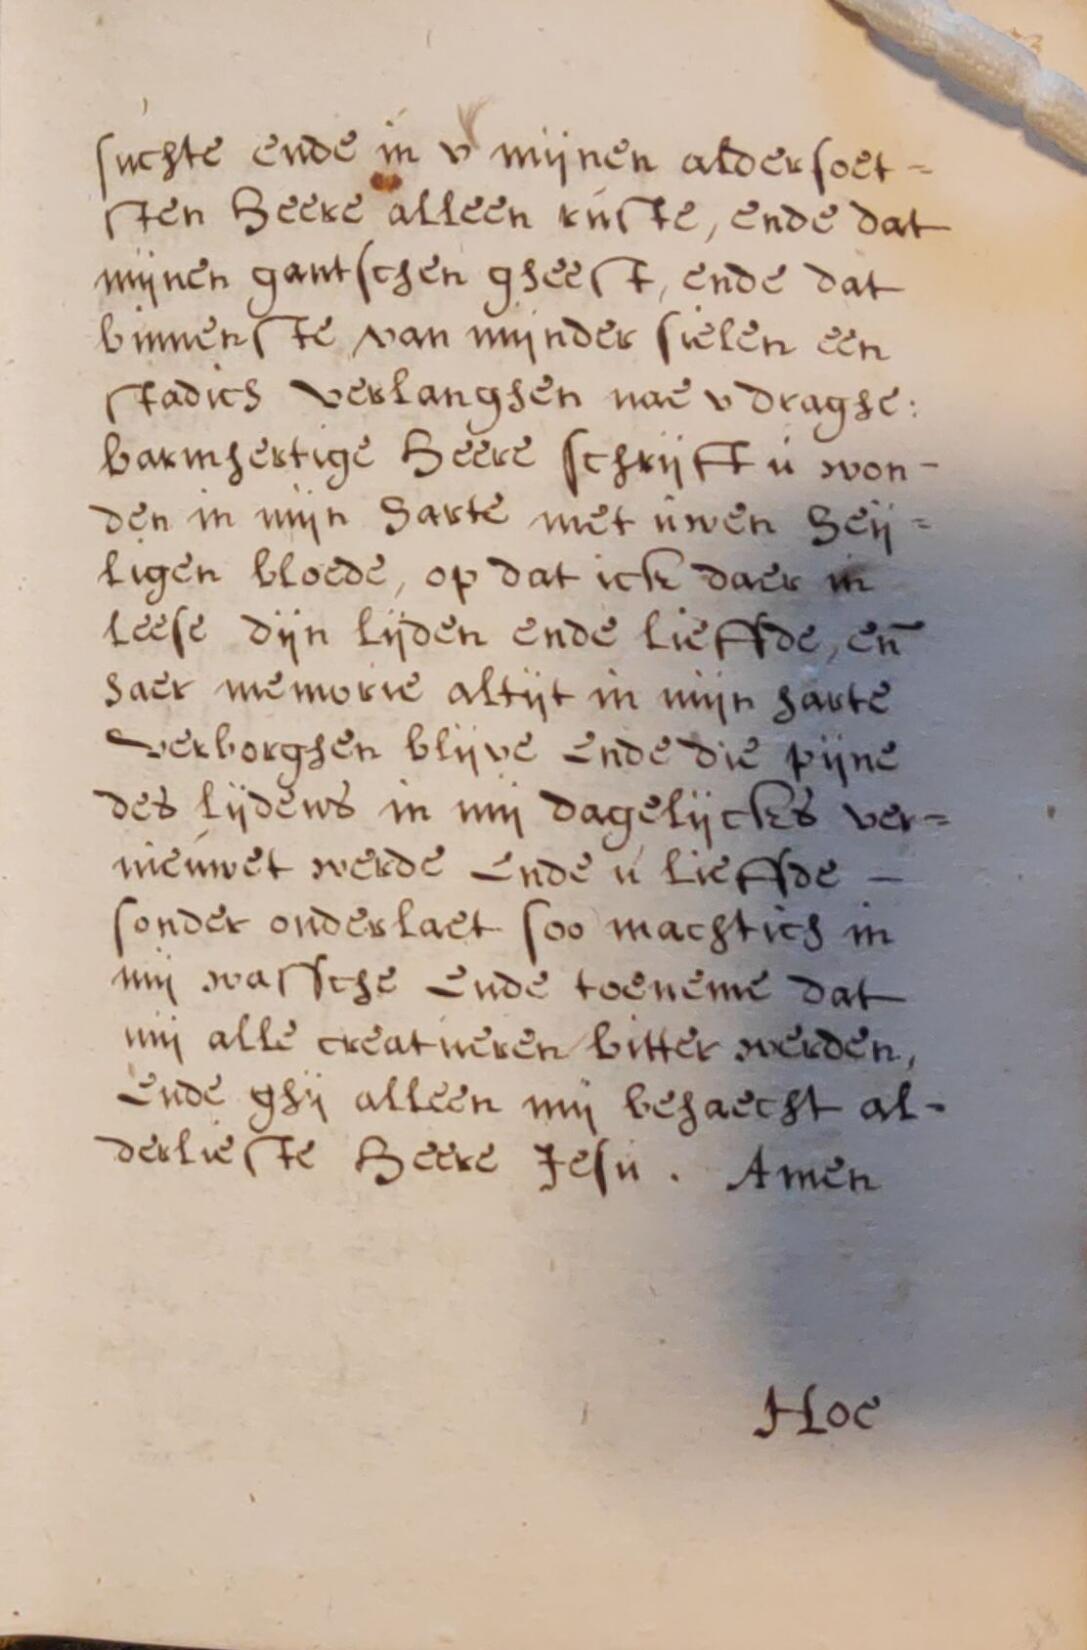 suchte ende in v mijnen aldersoet=
sten Heere alleen ruste, ende dat
mijnen gantschen gheest, ende dat
binnenste van mijnder sielen een
stadich verlanghen nae v draghe:
barmhertige Heere schrijft u won-
den in mijn harte met uwen Heij=
ligen bloede, op dat ick daer in
leese dijn lijden ende lieffde, en̄
haer memorie altijt in mijn harte
verborghen blijve Ende die pijne
des lijdens in mij dagelijcks ver=
nieuwet werde Ende u lieffde —
sonder onderlaet soo machtich in
mij wassche Ende toeneme dat
mij alle creatueren bitter werden,
Ende ghij alleen mij behaecht al-
derlieste Heere Jesu . Amen
Hoe